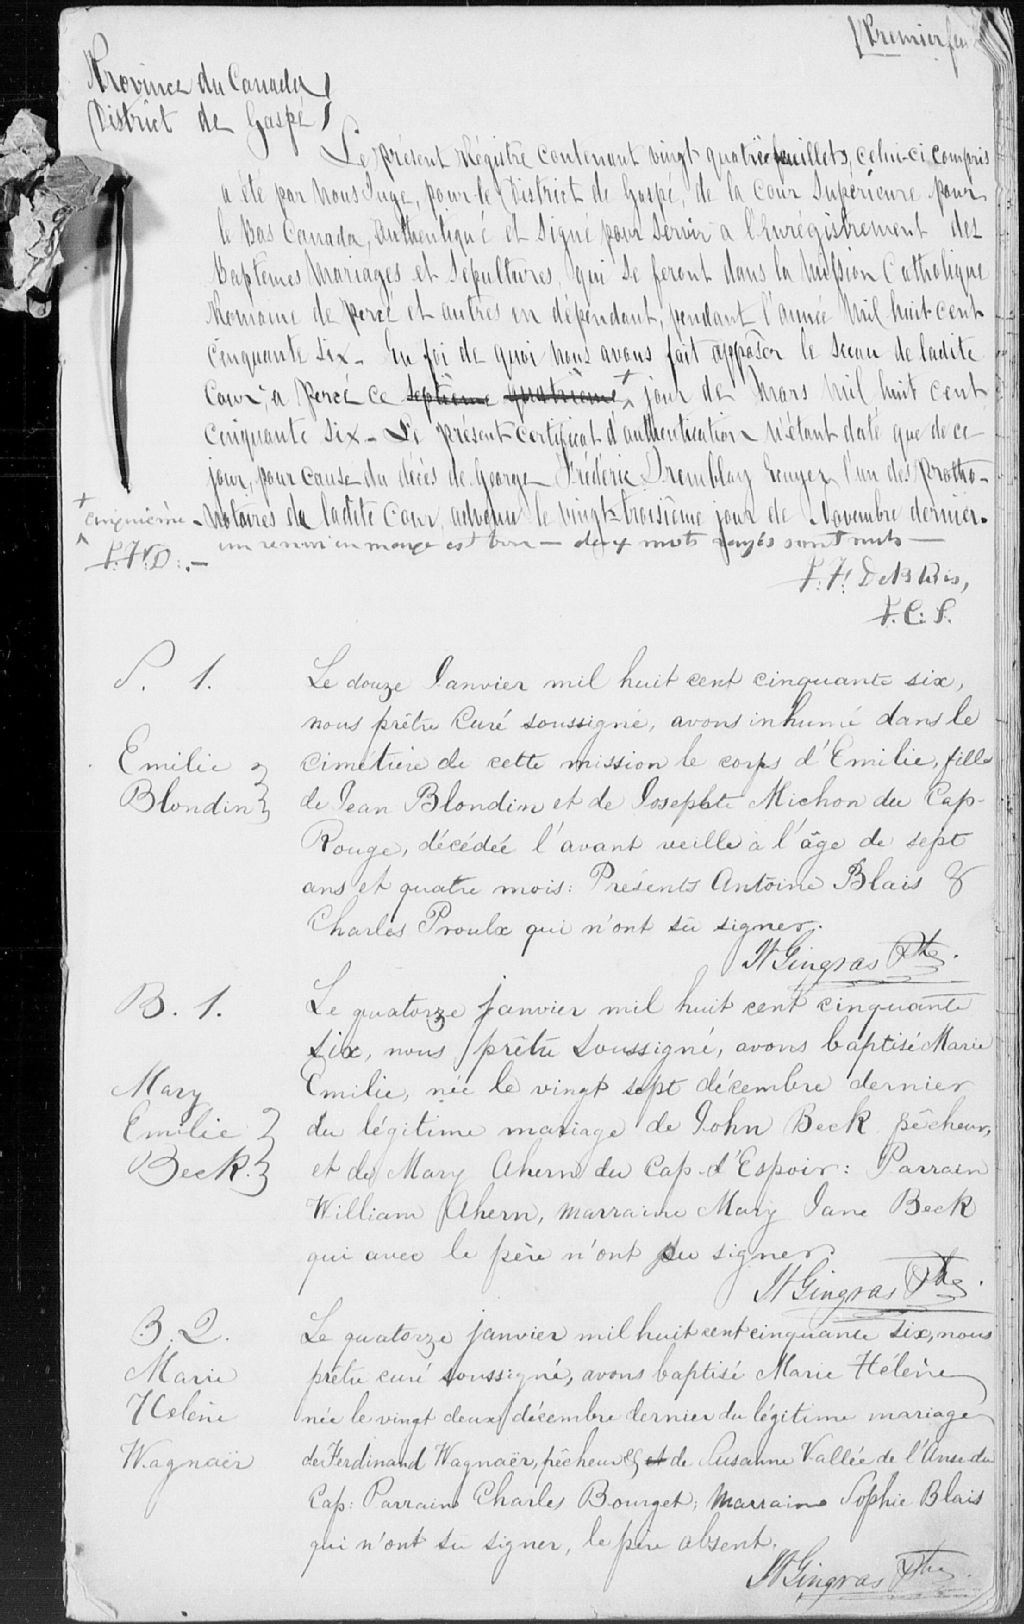 Premier feu
Province du Canada
District de Gaspé
Le présent Régistre contenant vingt quatre feuillets, celui-ci compris
a été par nous Juge, pour le District de Gaspé, de la Cour Supérieure pour
le Bas Canada, authentiqué et signé pour servir à l'enrégistrement des
Baptêmes Mariages et Sépultures, qui se feront dans la Mission Catholique
Romaine de Percé et autres en dépendant, pendant l'année Mil huit cent
cinquante six - En foi de quoi nous avons fait apposer le Sceau de ladite
Cour, à Percé ce septième quatrième + jour de Mars Mil huit cent
cinquante six - Le présent certificat d'authentication n'étant daté que de ce
jour, pour cause du décès de George Frédéric Tremblay Ecuyer, l'un des Protho-
+ cinquième - notaires de ladite Cour, advenu le vingt-troisième jour de Novembre dernier.
un renvoi en marge est bon - deux mots rayés sont nuls -
J.:C:J.
S. 1.
Emilie
Blondin
Le douze Janvier mil huit cent cinquante six,
nous prêtre Curé soussigné, avons inhumé dans le
cimétière de cette mission le corps d'Emilie, fille
de Jean Blondin et de Josephte Michon du Cap-
Rouge, décédée l'avant veille à l'âge de sept
ans et quatre mois: Présents Antoine Blais &
Charles Proulx qui n'ont su signer.
N Gingras Ptre.
B. 1.
Mary
Emilie
Beck.
Le quatorze janvier mil huit cent cinquante
six, nous prêtre soussigné, avons baptisé Marie
Emilie, née le vingt sept décembre dernier
du légitime mariage de John Beck pêcheur,
et de Mary Ahern du Cap-d'Espoir: Parrain
William Ahern, marraine Mary Jane Beck
qui avec le père n'ont su signer.
N Gingras Ptre.
B. 2.
Marie
Helène
Wagnaër
Le quatorze janvier mil huit cent cinquante six, nous
prêtre curé soussigné, avons baptisé Marie Hélène
née le vingt deux décembre dernier du légitime mariage
de Ferdinand Wagnaër, pêcheur & et de Susanne Vallée de l'Anse du
Cap: Parrain Charles Bourget; Marraine Sophie Blais
qui n'ont su signer, le père absent.
N Gingras Ptre.